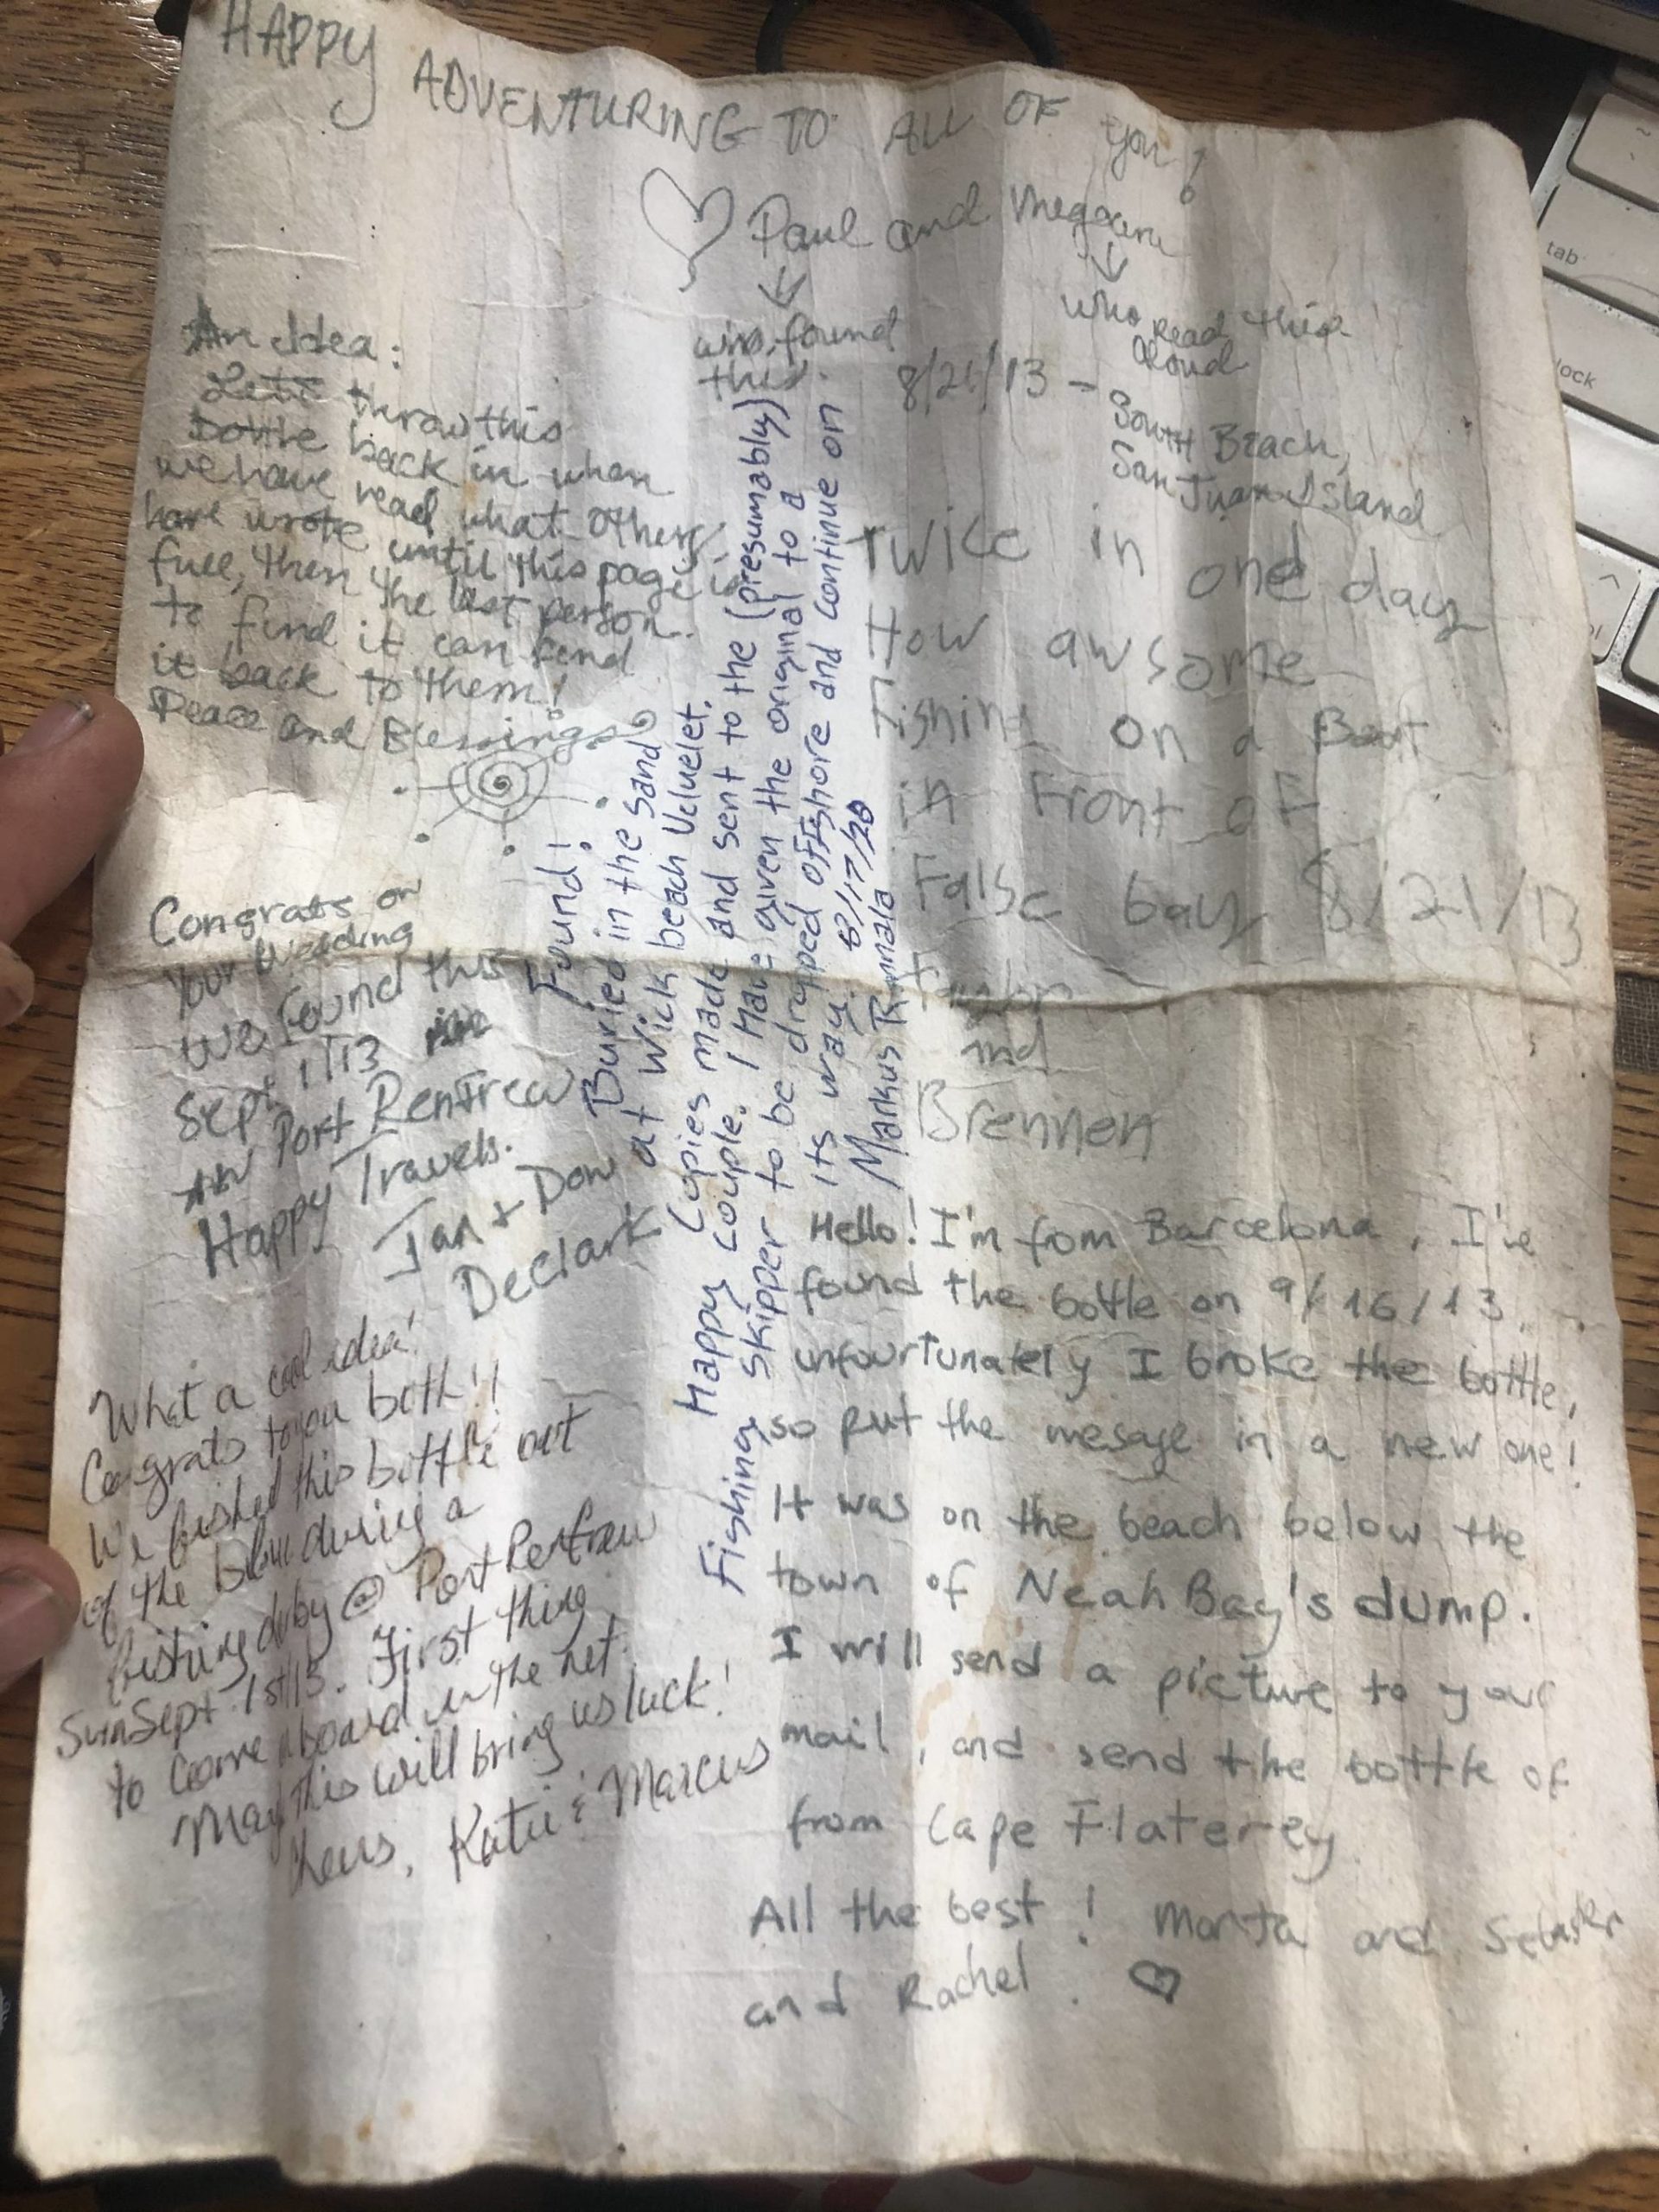 HAPPY ADVENTURING TO ALL OF you!
Paul and Megann
who found
this.
who read this
aloud
8/21/13 - South Beach,
San Juan Island
An Idea:
Lets throw this
bottle back in when
we have read what others
have wrote until this page is
full, then the last person
to find it can send
it back to them!
Peace and Blessings
Twice in one day
How awsome
Fishing on a Boat
in Front of
False bay 8/21/13
and
Brennen
Congrats on
Your Wedding
We found this
Sept 1/13
in Port Renfrew
Happy Travels.
Jan + Don
Declark
Found!
Buried in the sand
at Wick beach Ucluelet.
Copies made and sent to the (presumably)
Happy couple. I Have given the original to a
Fishing skipper to be dropped offshore and continue on
its way. 8/17/20
Markus
Hello! I'm from Barcelona, I've
found the bottle on 9/16/13,
unfourtunately I broke the bottle,
so put the mesage in a new one!
It was on the beach below the
town of Neah Bay's dump.
I will send a picture to your
mail, and send the bottle of
from Cape Flaterey
All the best! Marta and Sebastian
and Rachel.
What a cool idea!
Congrats to you both!!
We fished this bottle out
of the blue during a
fishing derby @ Port Renfrew
Sun Sept 1st/13. First thing
to come aboard in the net.
May this will bring us luck!
Cheers, Katie & Marcus